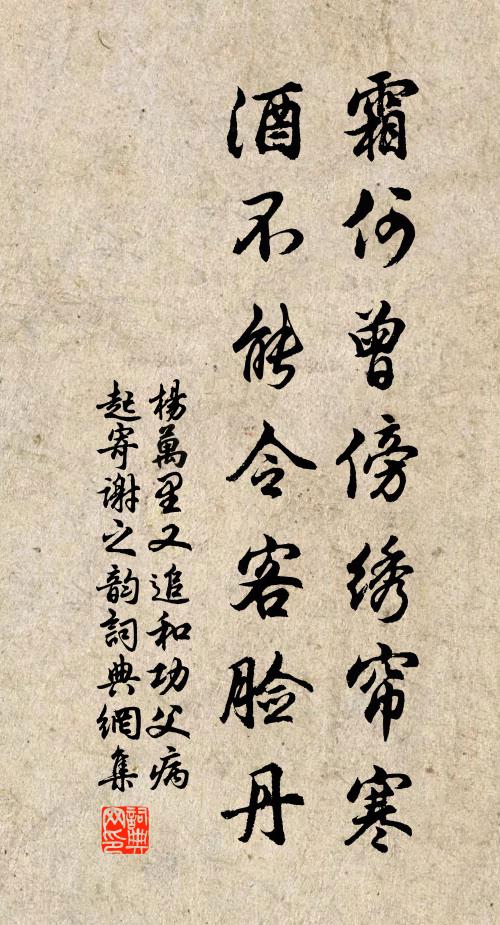 霜何曾傍绣帘寒
酒不能令客脸丹
楊萬里又追和功父病
起寄谢之韵詞典網集
詞典网印